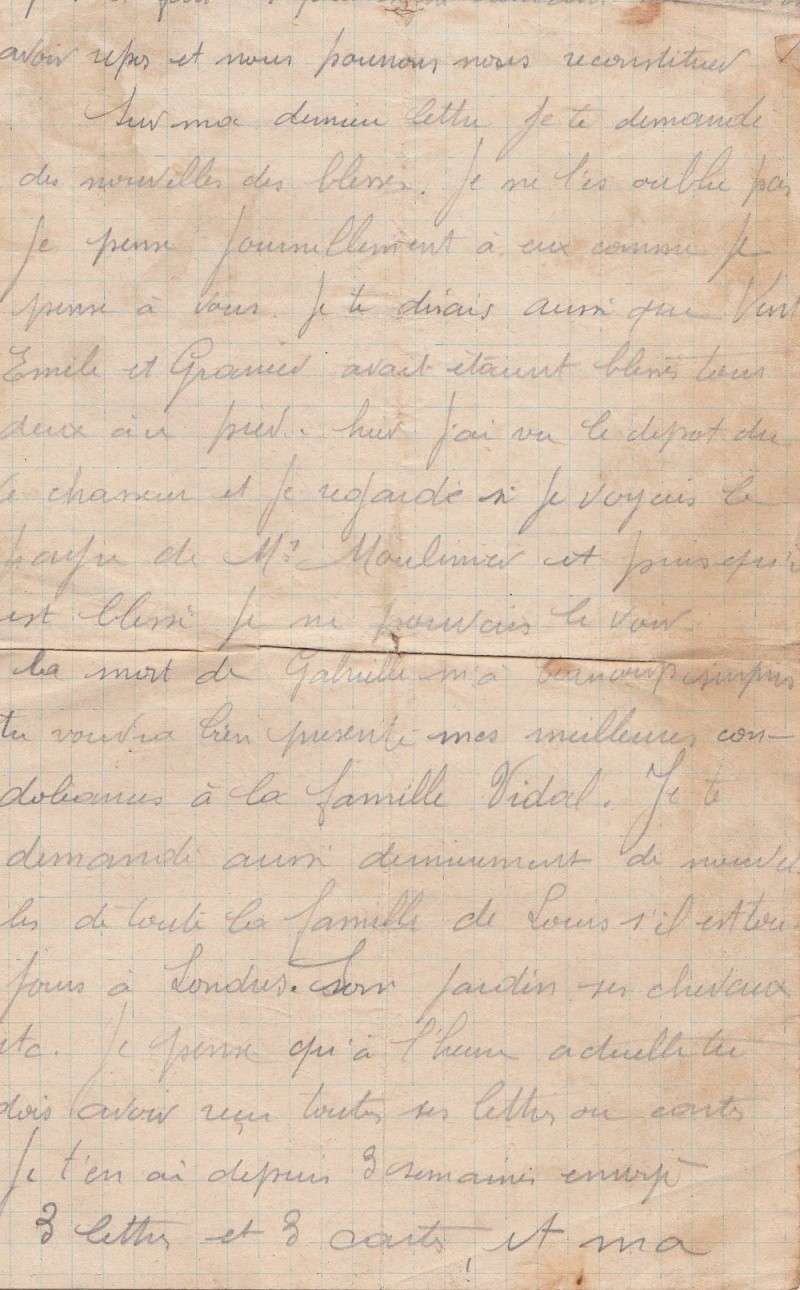 avoir repos et nous pourrons nous reconstituer
Sur ma dernier lettre Je te demandé
des nouvelles des blessés. Je ne l'es oublie pas
Je pense Journellement à eux comme Je
pense à vous. Je te dirais aussi que
Emile et Granier avait étaient blessés tous
deux àu pied. hier J'ai vu le depot du
chasseur et Je regardé si Je voyais le
de Mr Moulinier et puisqu'il
est blessé Je ne pouvais le voir
La mort de Gabrielle m'à beaucoup surpris
tu voudra bien presenté mes meilleures con-
doleances à la famille Vidal. Je te
demandé aussi dernierement de nouvel
les de toute la famille de Louis s'il est tou
jours à Londres. Son jardin ses chevaux
etc. Je pense qu'à l'heure actuelle tu
dois avoir reçu toutes ses lettres ou cartes
Je t'en ai depuis 3 semaines envoyé
3 lettres et 3 cartes, et ma